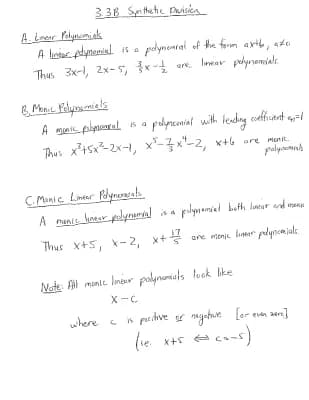 3.3B Synthetic Division
A. Linear Polynomials
A linear polynomial is a polynomial of the form ax+b, a≠0
Thus 3x-1, 2x-5, 2/3 x - 1/2 are linear polynomials.
B. Monic Polynomials
A monic polynomial is a polynomial with leading coefficient aₙ=1
Thus x³+5x²-2x-1, x⁵-7/3 x⁴-2, x+6 are monic
polynomials
C. Monic Linear Polynomials
A monic linear polynomial is a polynomial both linear and monic
Thus x+5, x-2, x+17/5 are monic linear polynomials.
Note: All monic linear polynomials look like
x-c
where c is positive or negative [or even zero]
(ie. x+5 ⇔ c=-5)